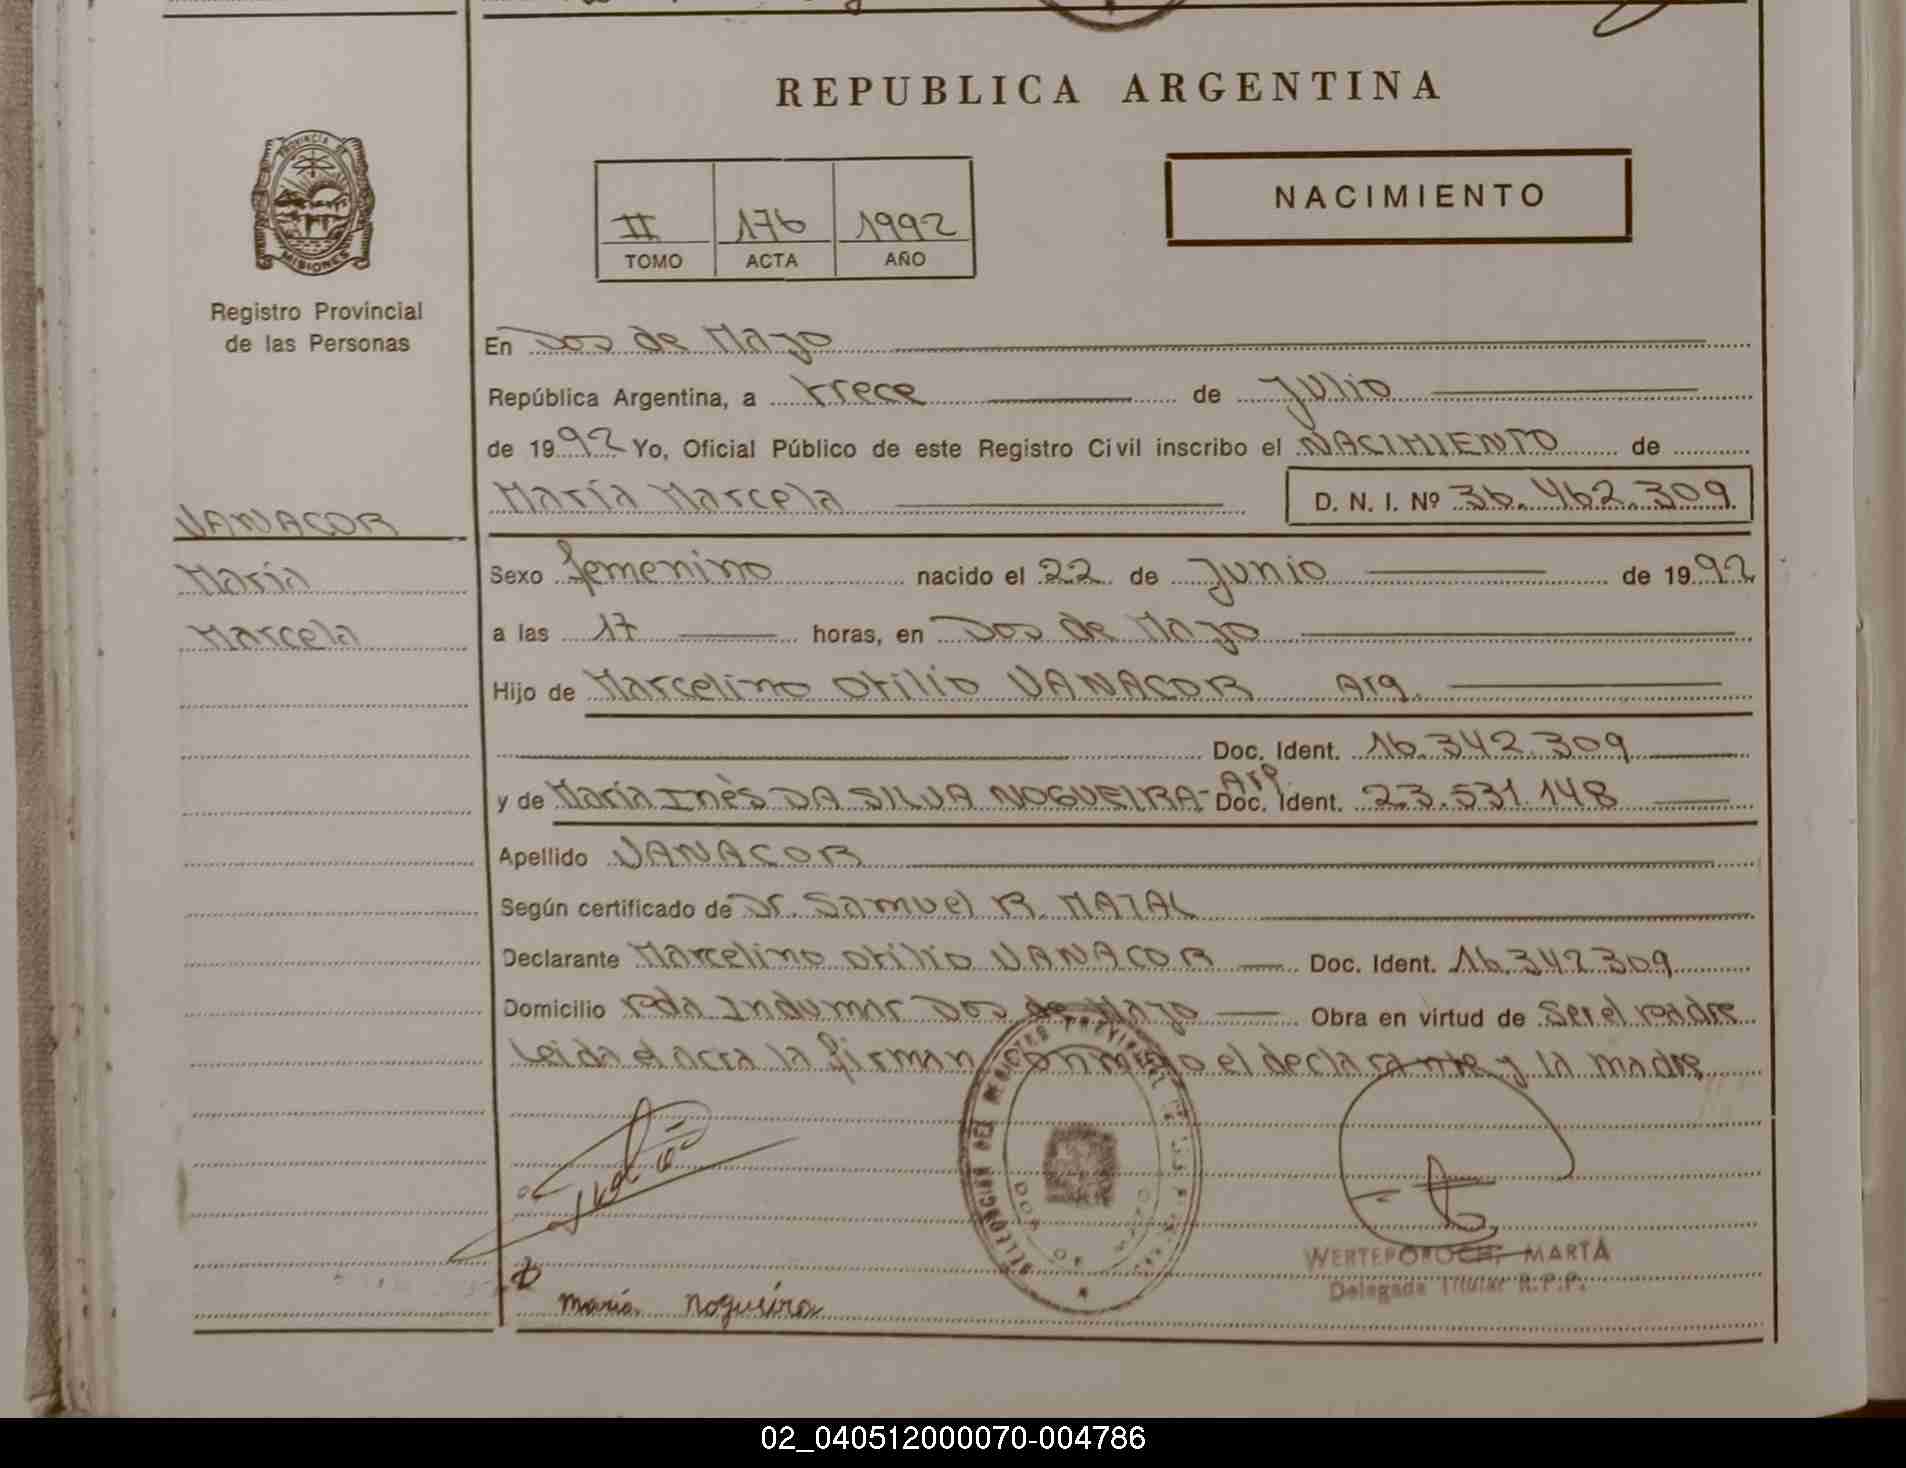 REPUBLICA ARGENTINA
PROVINCIA DE
MISIONES
Registro Provincial
de las Personas
NACIMIENTO
II 176 1992
TOMO ACTA AÑO
En Dos de Mayo
República Argentina, a trece de Julio
de 1992 Yo, Oficial Público de este Registro Civil inscribo el NACIMIENTO de
María Marcela D. N. I. Nº 36.462.309
VANACOR
María
Marcela
Sexo femenino nacido el 22 de Junio de 1992
a las 17 horas, en Dos de Mayo
Hijo de Marcelino Otilio VANACOR Arg.
Doc. Ident. 16.342.309
y de María Inès DA SILVA NOGUEIRA- Arg. Doc. Ident. 23.531.148
Apellido VANACOR
Según certificado de Dr. Samuel R.
Declarante Marcelino Otilio VANACOR Doc. Ident. 16.342.309
Domicilio Pda Indumar Dos de Mayo Obra en virtud de ser el padre
Leida el acta la firman conmigo el declarante y la madre
maria nogueira
WERTEPOROCH, MARTA
Delegada Titular R.P.P.
02_040512000070-004786